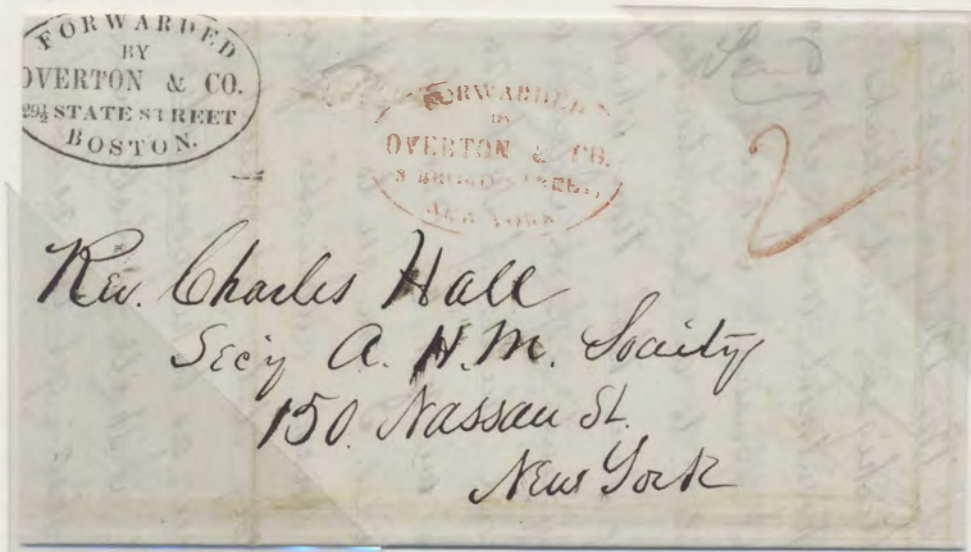 FORWARDED
BY
OVERTON & CO.
29½ STATE STREET
BOSTON.
FORWARDED
BY
OVERTON & CO.
8 BROAD STREET,
NEW YORK
2
Rev. Charles Hall
Sec'y A. H. M. Society
150. Nassau St.
New York